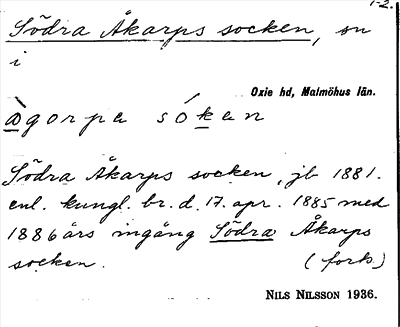 1-2.
Södra Åkarps socken, sn
i
Oxie hd, Malmöhus län.
àgorpa sóken
Södra Åkarps socken, jb 1881.
enl. kungl. br. d. 17. apr. 1885 med
1886 års ingång Södra Åkarps
socken. (forts.)
NILS NILSSON 1936.